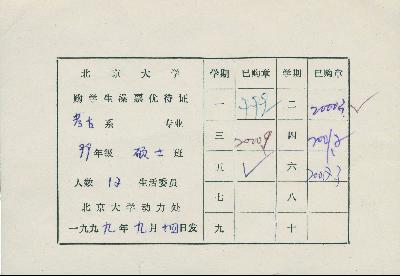 北京大学
购学生澡票优待证
考古系 专业
99年级 硕士班
人数 12 生活委员
北京大学动力处
一九九九年九月十四日发
学期 已购章 学期 已购章
一 99.9 二 2000.3
三 2000.9 四
五 六
七 八
九 十